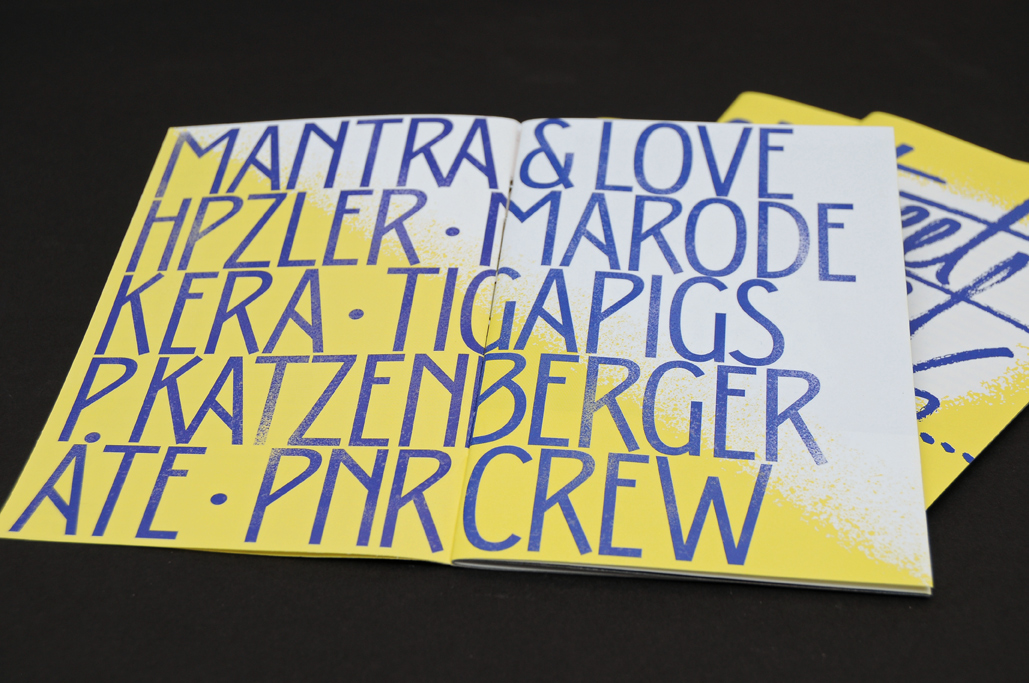 MANTRA & LOVE
HPZLER · MARODE
KERA · TIGAPIGS
P.KATZENBERGER
ATE · PNR CREW